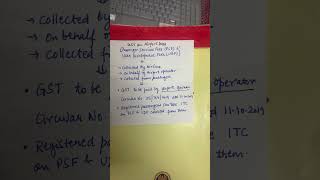 GST on Airport Dues
(Passenger Service Fees (PSF) &
User Development Fees (UDF))
→ Collected By Airlines
→ on behalf of Airport operator
→ Collected from passengers
• GST to be paid by Airport operator
Circular No
• Registered passengers can take ITC
on PSF & UDF collected from them.
• Collected
• on behalf o
• Collected f
GST to be
operator
Circular No
dated 11-10-2019
Registered
ITC
on PSF & U
them.